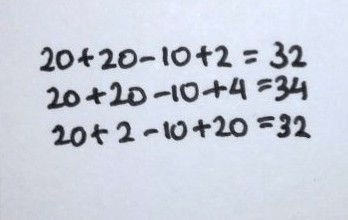 20+20-10+2=32
20+20-10+4=34
20+2-10+20=32